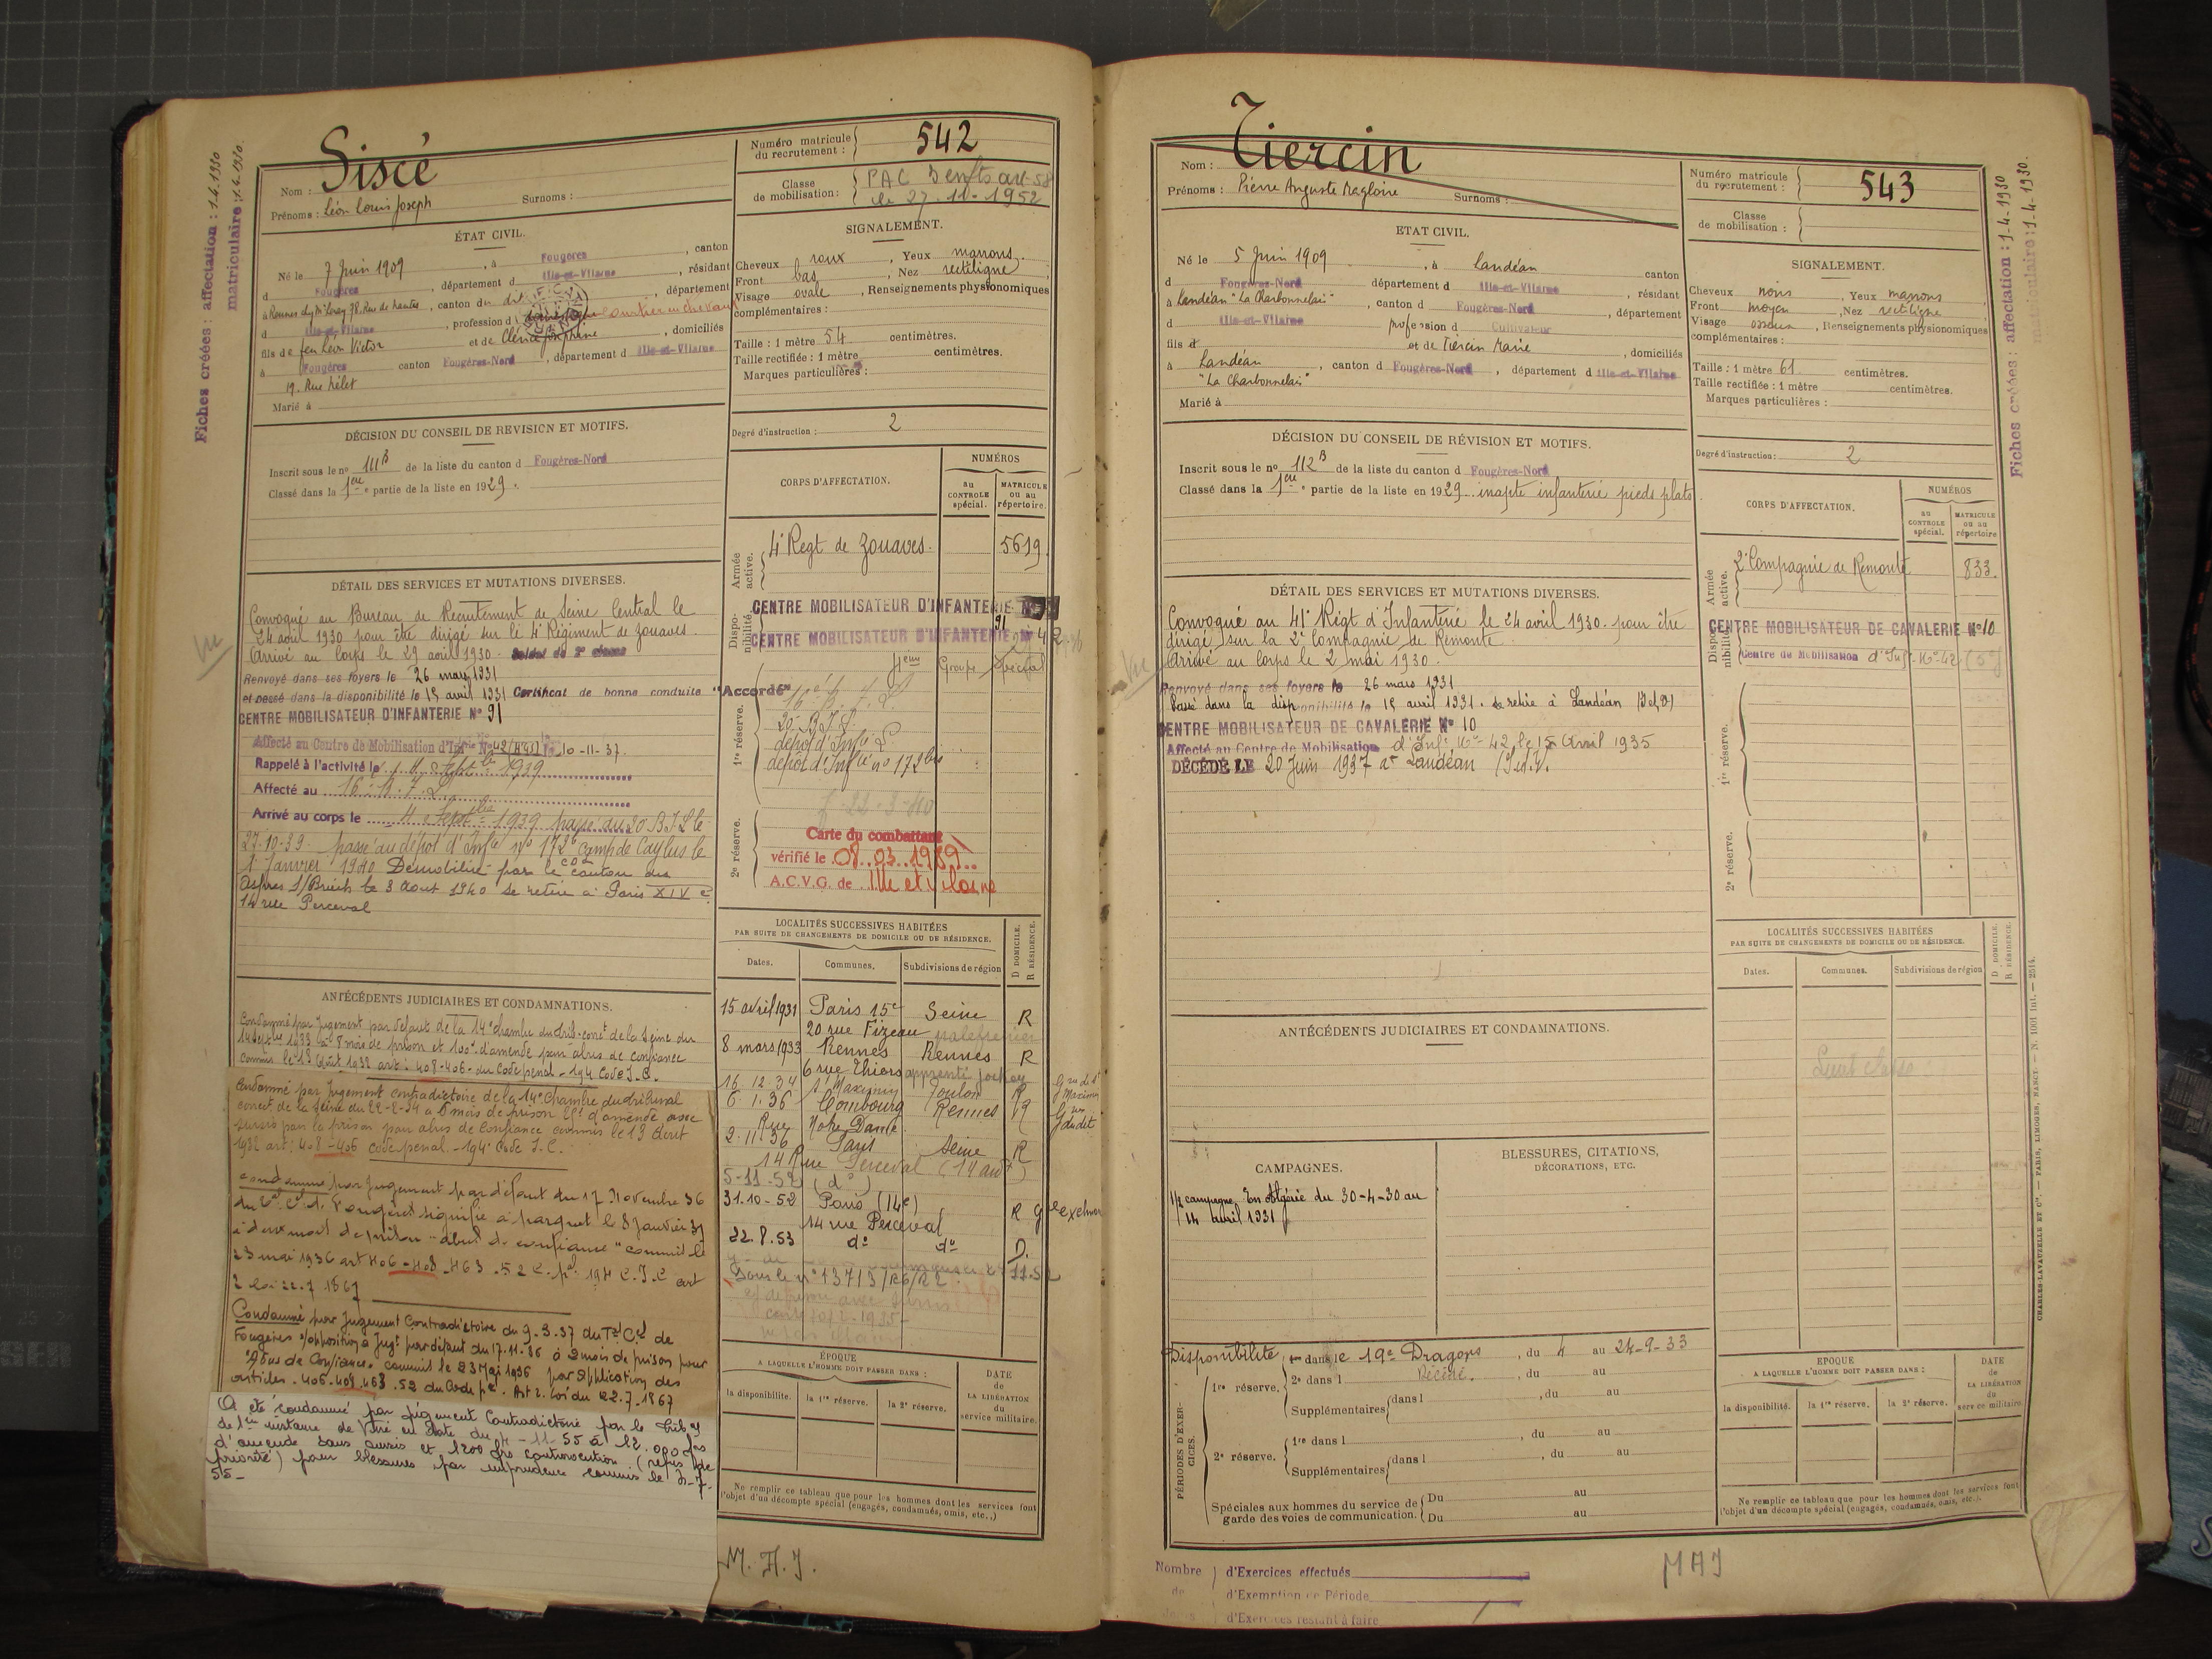 Fiches créées : affectation : 1-4-1930
matriculaire : 1-4-1930.
Nom : Siscé
Prénoms : Léon Louis Joseph Surnoms :
Numéro matricule du recrutement : 542
Classe de mobilisation :
le 27-11-1952
ÉTAT CIVIL.
Né le 7 Juin 1909, à Fougères, canton
d Fougères, département d Ille-et-Vilaine, résidant
à Rennes 78 Rue de Nantes, canton du dit, département
d Ille-et-Vilaine, profession d
fils de feu Léon Victor et de Joséphine, domiciliés
à Fougères canton Fougères-Nord, département d Ille-et-Vilaine
19. Rue
Marié à
SIGNALEMENT.
Cheveux roux, Yeux marrons
Front bas, Nez rectiligne
Visage ovale, Renseignements physionomiques
complémentaires :
Taille : 1 mètre 54 centimètres.
Taille rectifiée : 1 mètre centimètres.
Marques particulières :
Degré d'instruction : 2
DÉCISION DU CONSEIL DE REVISION ET MOTIFS.
Inscrit sous le nº 111B de la liste du canton d Fougères-Nord
Classé dans la 1ère partie de la liste en 1929.
CORPS D'AFFECTATION.
NUMÉROS
au CONTROLE spécial.
MATRICULE ou au répertoire.
Armée active.
4e Regt de Zouaves. 5619.
Disponibilité.
CENTRE MOBILISATEUR D'INFANTERIE Nº
91
CENTRE MOBILISATEUR D'INFANTERIE Nº 42
1re réserve.
16e
20e B.I.L.
dépot d'Infie
depot d'Infie nº 172 bis
2e réserve.
Carte du combattant
vérifié le 08.03.1989
A.C.V.G. de Ille et Vilaine
DÉTAIL DES SERVICES ET MUTATIONS DIVERSES.
Convoqué au Bureau de Recrutement de Seine Central le
24 avril 1930 pour être dirigé sur le 4e Régiment de Zouaves.
Arrivé au Corps le 29 avril 1930. Soldat de 2e classe
Renvoyé dans ses foyers le 26 mars 1931
et passé dans la disponibilité le 15 avril 1931 Certificat de bonne conduite "Accordé"
CENTRE MOBILISATEUR D'INFANTERIE Nº 91
Affecté au Centre de Mobilisation d'Infie Nº 42 le 10-11-37.
Rappelé à l'activité le Septbre 1939
Affecté au 16e
Arrivé au corps le 4 Septbre 1939 passé au 20 B.I.L le
27-10-39 passé au dépot d'Infie nº 172 camp de Caylus le
1er Janvier 1940 Démobilisé par le canton des
le 3 Août 1940 se retire à Paris XIVe
14 rue Perceval
ANTÉCÉDENTS JUDICIAIRES ET CONDAMNATIONS.
Condamné par Jugement par défaut de la 14e chambre du Trib. corrt de la Seine du
1933 à 8 mois de prison et 100f d'amende pour abus de confiance
commis le 13 Août 1932 art. 408-406- du Code penal - 194 Code I.C.
Condamné par Jugement contradictoire de la 14e Chambre du tribunal
correct de la Seine du 22-2-34 à 8 mois de prison 25f d'amende avec
sursis pour la prison pour abus de confiance commis le 13 Août
1932 art: 408-406 code penal - 194 Code I.C.
Condamné par Jugement par défaut du 17 Novembre 36
du Tal Cel d. Fougères signifié à parquet le 8 Janvier 37
à deux mois de prison "abus de confiance" commis le
23 mai 1936 art 406-408-463-52 C. pal 194 C.I.C art
2 loi 22.7.1867
Condamné par Jugement Contradictoire du 9-3-37 du Tal Cel de
Fougères s/opposition à Jugt par défaut du 17.11.36 à 2 mois de prison pour
"Abus de Confiance" commis le 23 Mai 1936 par application des
articles. 406.408.463.52 du Code pal. Art 2. Loi du 22.7.1867
A été condamné par jugement Contradictoire par le Tribal
de 1ère instance de Vitré en date du 4-11-55 à 12.000 frs
d'amende sans sursis et 1200 frs contravention (refus de
priorité) pour blessures par imprudence commis le
55-
LOCALITÉS SUCCESSIVES HABITÉES
PAR SUITE DE CHANGEMENTS DE DOMICILE OU DE RÉSIDENCE.
Dates. Communes. Subdivisions de région
D DOMICILE. R RÉSIDENCE.
15 avril 1931 Paris 15e Seine R
20 rue Fizeau palefrenier
8 mars 1933 Rennes Rennes R
6 rue Thiers apprenti jockey
16.12.34 St Maximin Toulon R
6.1.36 Combourg Rennes R
Rue Notre Dame
2-11-36 Paris Seine R
14 Rue Perceval (14 arrt)
5-11-52 (do)
31.10-52 Paris (14e) R
14 rue Perceval
22.8.53 do do D.
Sous le nº 13713/RG/R2
ÉPOQUE
A LAQUELLE L'HOMME DOIT PASSER DANS :
la disponibilité. la 1re réserve. la 2e réserve.
DATE de LA LIBÉRATION du service militaire.
Ne remplir ce tableau que pour les hommes dont les services font
l'objet d'un décompte spécial (engagés, condamnés, omis, etc.,)
M.A.J.
Nom : Tiercin
Prénoms : Pierre Auguste Magloire Surnoms :
Numéro matricule du recrutement : 543
Classe de mobilisation :
Fiches créées : affectation : 1-4-1930
matriculaire : 1-4-1930.
ETAT CIVIL.
Né le 5 Juin 1909, à Landéan canton
d Fougères-Nord département d Ille-et-Vilaine, résidant
à Landéan "La Charbonnelais", canton d Fougères-Nord, département
d Ille-et-Vilaine profession d Cultivateur
fils d et de Tiercin Marie, domiciliés
à Landéan, canton d Fougères-Nord, département d Ille-et-Vilaine
"La Charbonnelais"
Marié à
SIGNALEMENT.
Cheveux noirs, Yeux marrons
Front moyen, Nez rectiligne
Visage osseux, Renseignements physionomiques
complémentaires :
Taille : 1 mètre 61 centimètres.
Taille rectifiée : 1 mètre centimètres.
Marques particulières :
Degré d'instruction : 2
DÉCISION DU CONSEIL DE RÉVISION ET MOTIFS.
Inscrit sous le nº 112B de la liste du canton d Fougères-Nord
Classé dans la 1ère partie de la liste en 1929 inapte infanterie pieds plats
CORPS D'AFFECTATION.
NUMÉROS
au CONTROLE spécial.
MATRICULE ou au répertoire
Armée active.
2e Compagnie de Remonte 833.
Disponibilité.
CENTRE MOBILISATEUR DE CAVALERIE Nº 10
Centre de Mobilisation d'Inf. Nº 42
1re réserve.
2e réserve.
DÉTAIL DES SERVICES ET MUTATIONS DIVERSES.
Convoqué au 41e Régt d'Infanterie le 24 avril 1930 pour être
dirigé sur la 2e Compagnie de Remonte.
Arrivé au Corps le 2 mai 1930.
Renvoyé dans ses foyers le 26 mars 1931
Passé dans la disponibilité le 15 avril 1931. se retire à Landéan (I et V)
CENTRE MOBILISATEUR DE CAVALERIE Nº 10
Affecté au Centre de Mobilisation d'Infie Nº 42 le 15 Avril 1935
DÉCÉDÉ LE 20 Juin 1937 à Landéan (I.et.V.
ANTÉCÉDENTS JUDICIAIRES ET CONDAMNATIONS.
LOCALITÉS SUCCESSIVES HABITÉES
PAR SUITE DE CHANGEMENTS DE DOMICILE OU DE RÉSIDENCE.
Dates. Communes. Subdivisions de région
D DOMICILE. R RÉSIDENCE.
CAMPAGNES.
1/2 campagne En Algérie du 30-4-30 au
14 avril 1931
BLESSURES, CITATIONS,
DÉCORATIONS, ETC.
PÉRIODES D'EXERCICES.
Disponibilité
1re réserve. 1re dans le 19e Dragons, du 4 au 24-9-33
2e dans l Décédé., du au
Supplémentaires dans l, du au
2e réserve. 1re dans l, du au
Supplémentaires dans l, du au
Spéciales aux hommes du service de
garde des voies de communication. Du au
Du au
EPOQUE
A LAQUELLE L'HOMME DOIT PASSER DANS :
la disponibilité. la 1re réserve. la 2e réserve.
DATE de LA LIBÉRATION du service militaire.
Ne remplir ce tableau que pour les hommes dont les services font
l'objet d'un décompte spécial (engagés, condamnés, omis, etc.,).
Nombre de Jours
d'Exercices effectués
d'Exemption de Période
d'Exercices restant à faire
MAJ
CHARLES-LAVAUZELLE ET Cie. — PARIS, LIMOGES, NANCY. — N. 1001 Int. — 2514.